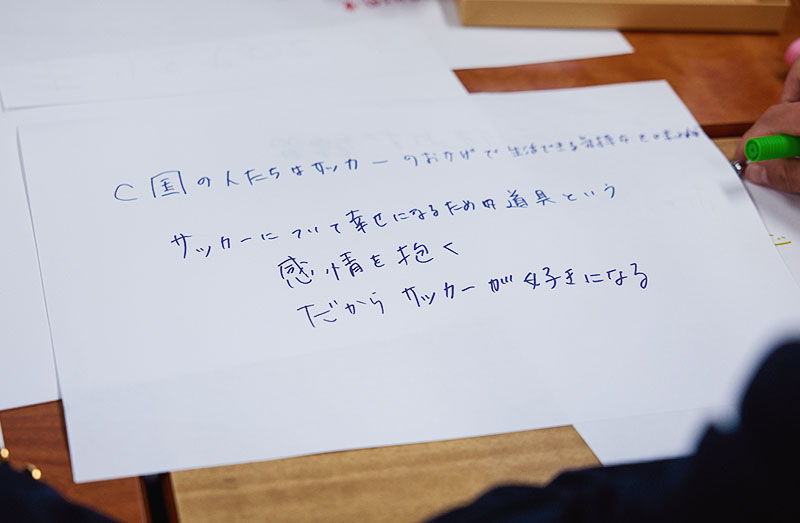 C国の人たちはサッカーのおかげで生活できる
サッカーについて幸せになるための道具という
感情を抱く
だからサッカーが好きになる